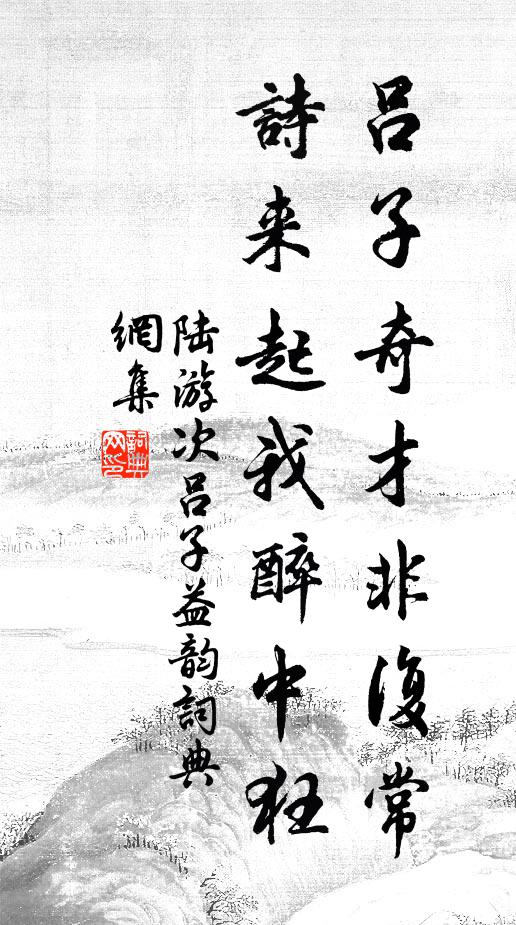 吕子奇才非復常
詩来起我醉中狂
陆游次吕子益韵詞典
網集
詞典网印